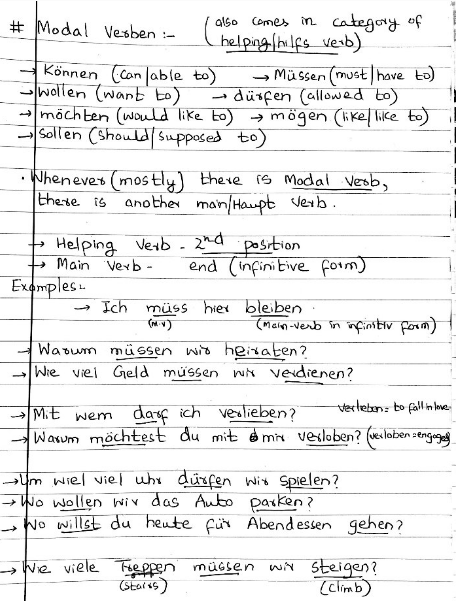 # Modal Verben :- (also comes in category of
helping/hilfs verb)
→ Können (can/able to) → Müssen (must/have to)
→ wollen (want to) → dürfen (allowed to)
→ möchten (would like to) → mögen (like/like to)
→ sollen (should/supposed to)
· Whenever (mostly) there is Modal Verb,
there is another main/Haupt verb.
→ Helping Verb - 2nd position
→ Main Verb - end (infinitive form)
Examples:-
→ Ich müss hier bleiben.
(M.V) (Main-verb in infinitiv form)
→ Warum müssen wir heiraten?
→ Wie viel Geld müssen wir verdienen?
→ Mit wem darf ich verlieben? verlieben = to fall in love
→ Warum möchtest du mit mir verloben? (verloben = engaged)
→ Um wiel viel uhr dürfen wir spielen?
→ Wo wollen wir das Auto parken?
→ Wo willst du heute für Abendessen gehen?
→ Wie viele Treppen müssen wir steigen?
(stairs) (climb)